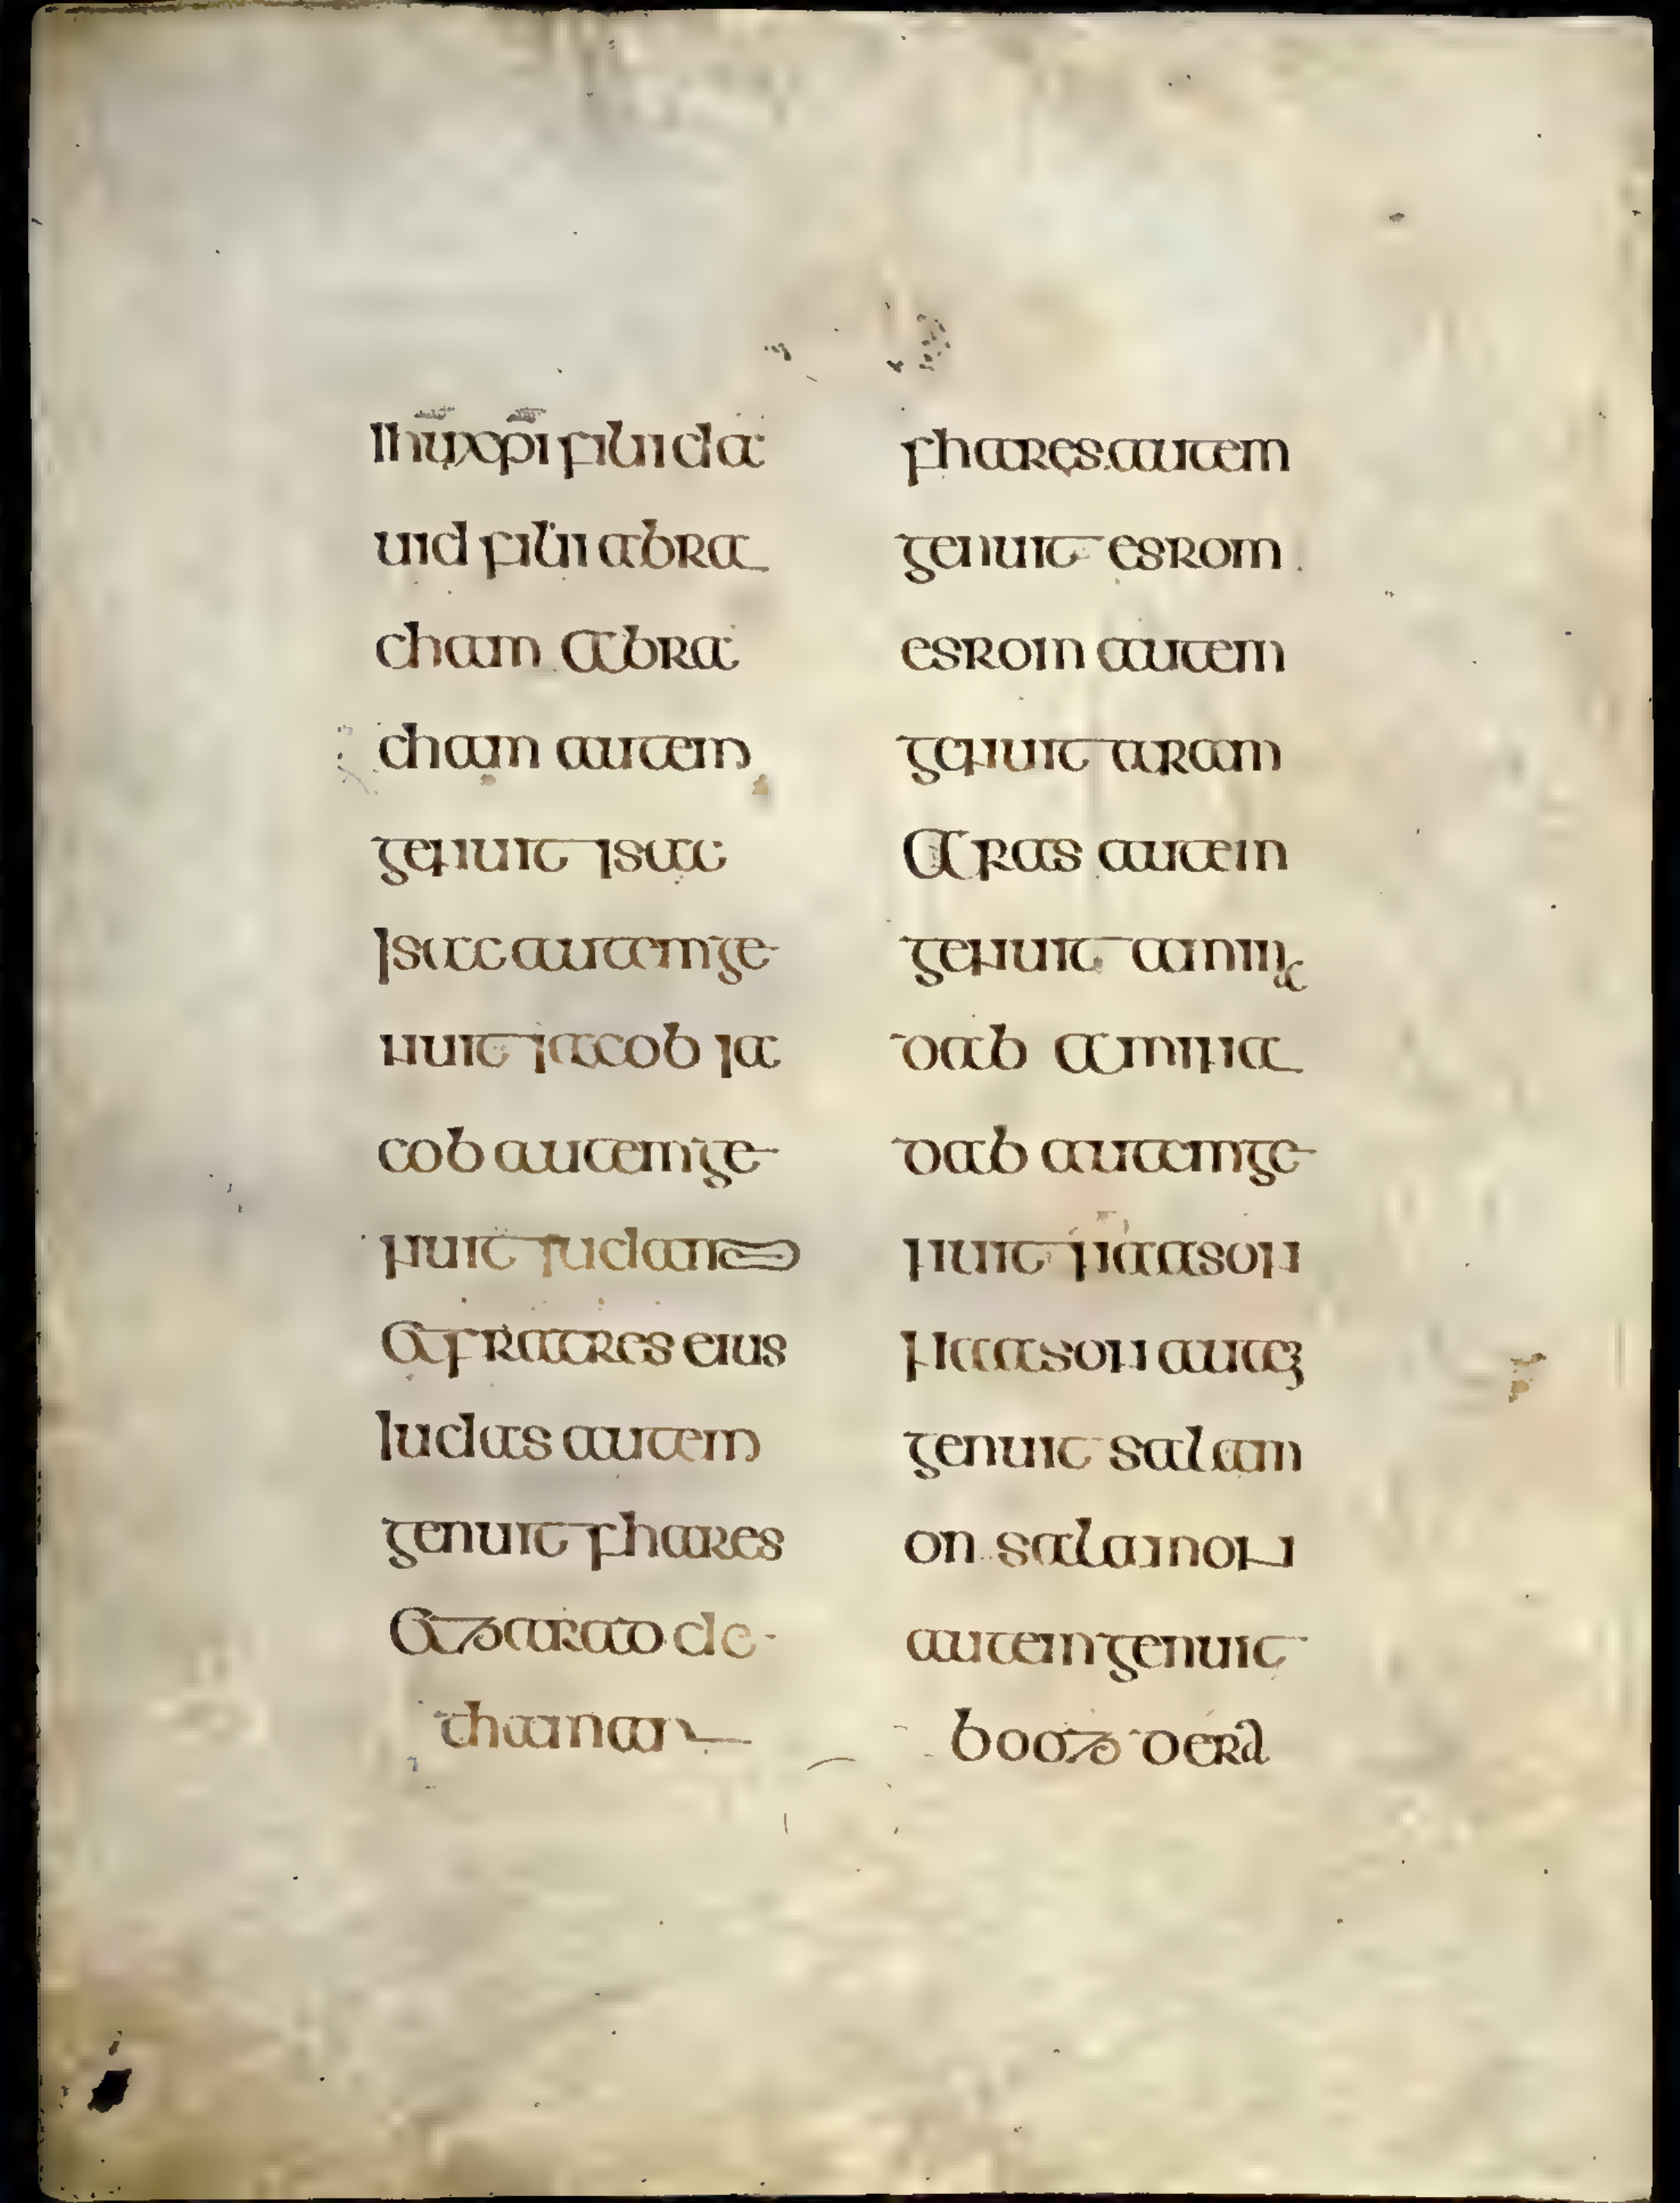 Ihū xp̄i filii da
uid filii abra
cham Abra
cham autem
genuit isac
Isac autem ge
nuit iacob Ia
cob autem ge
nuit iudam
Et fratres eius
Iudas autem
genuit phares
Et zarad de
thamar
phares autem
genuit esrom
esrom autem
genuit aram
Aras autem
genuit amina
dab Amina
dab autem ge
nuit naason
Naason autem
genuit salam
on salamon
autem genuit
booz de ra